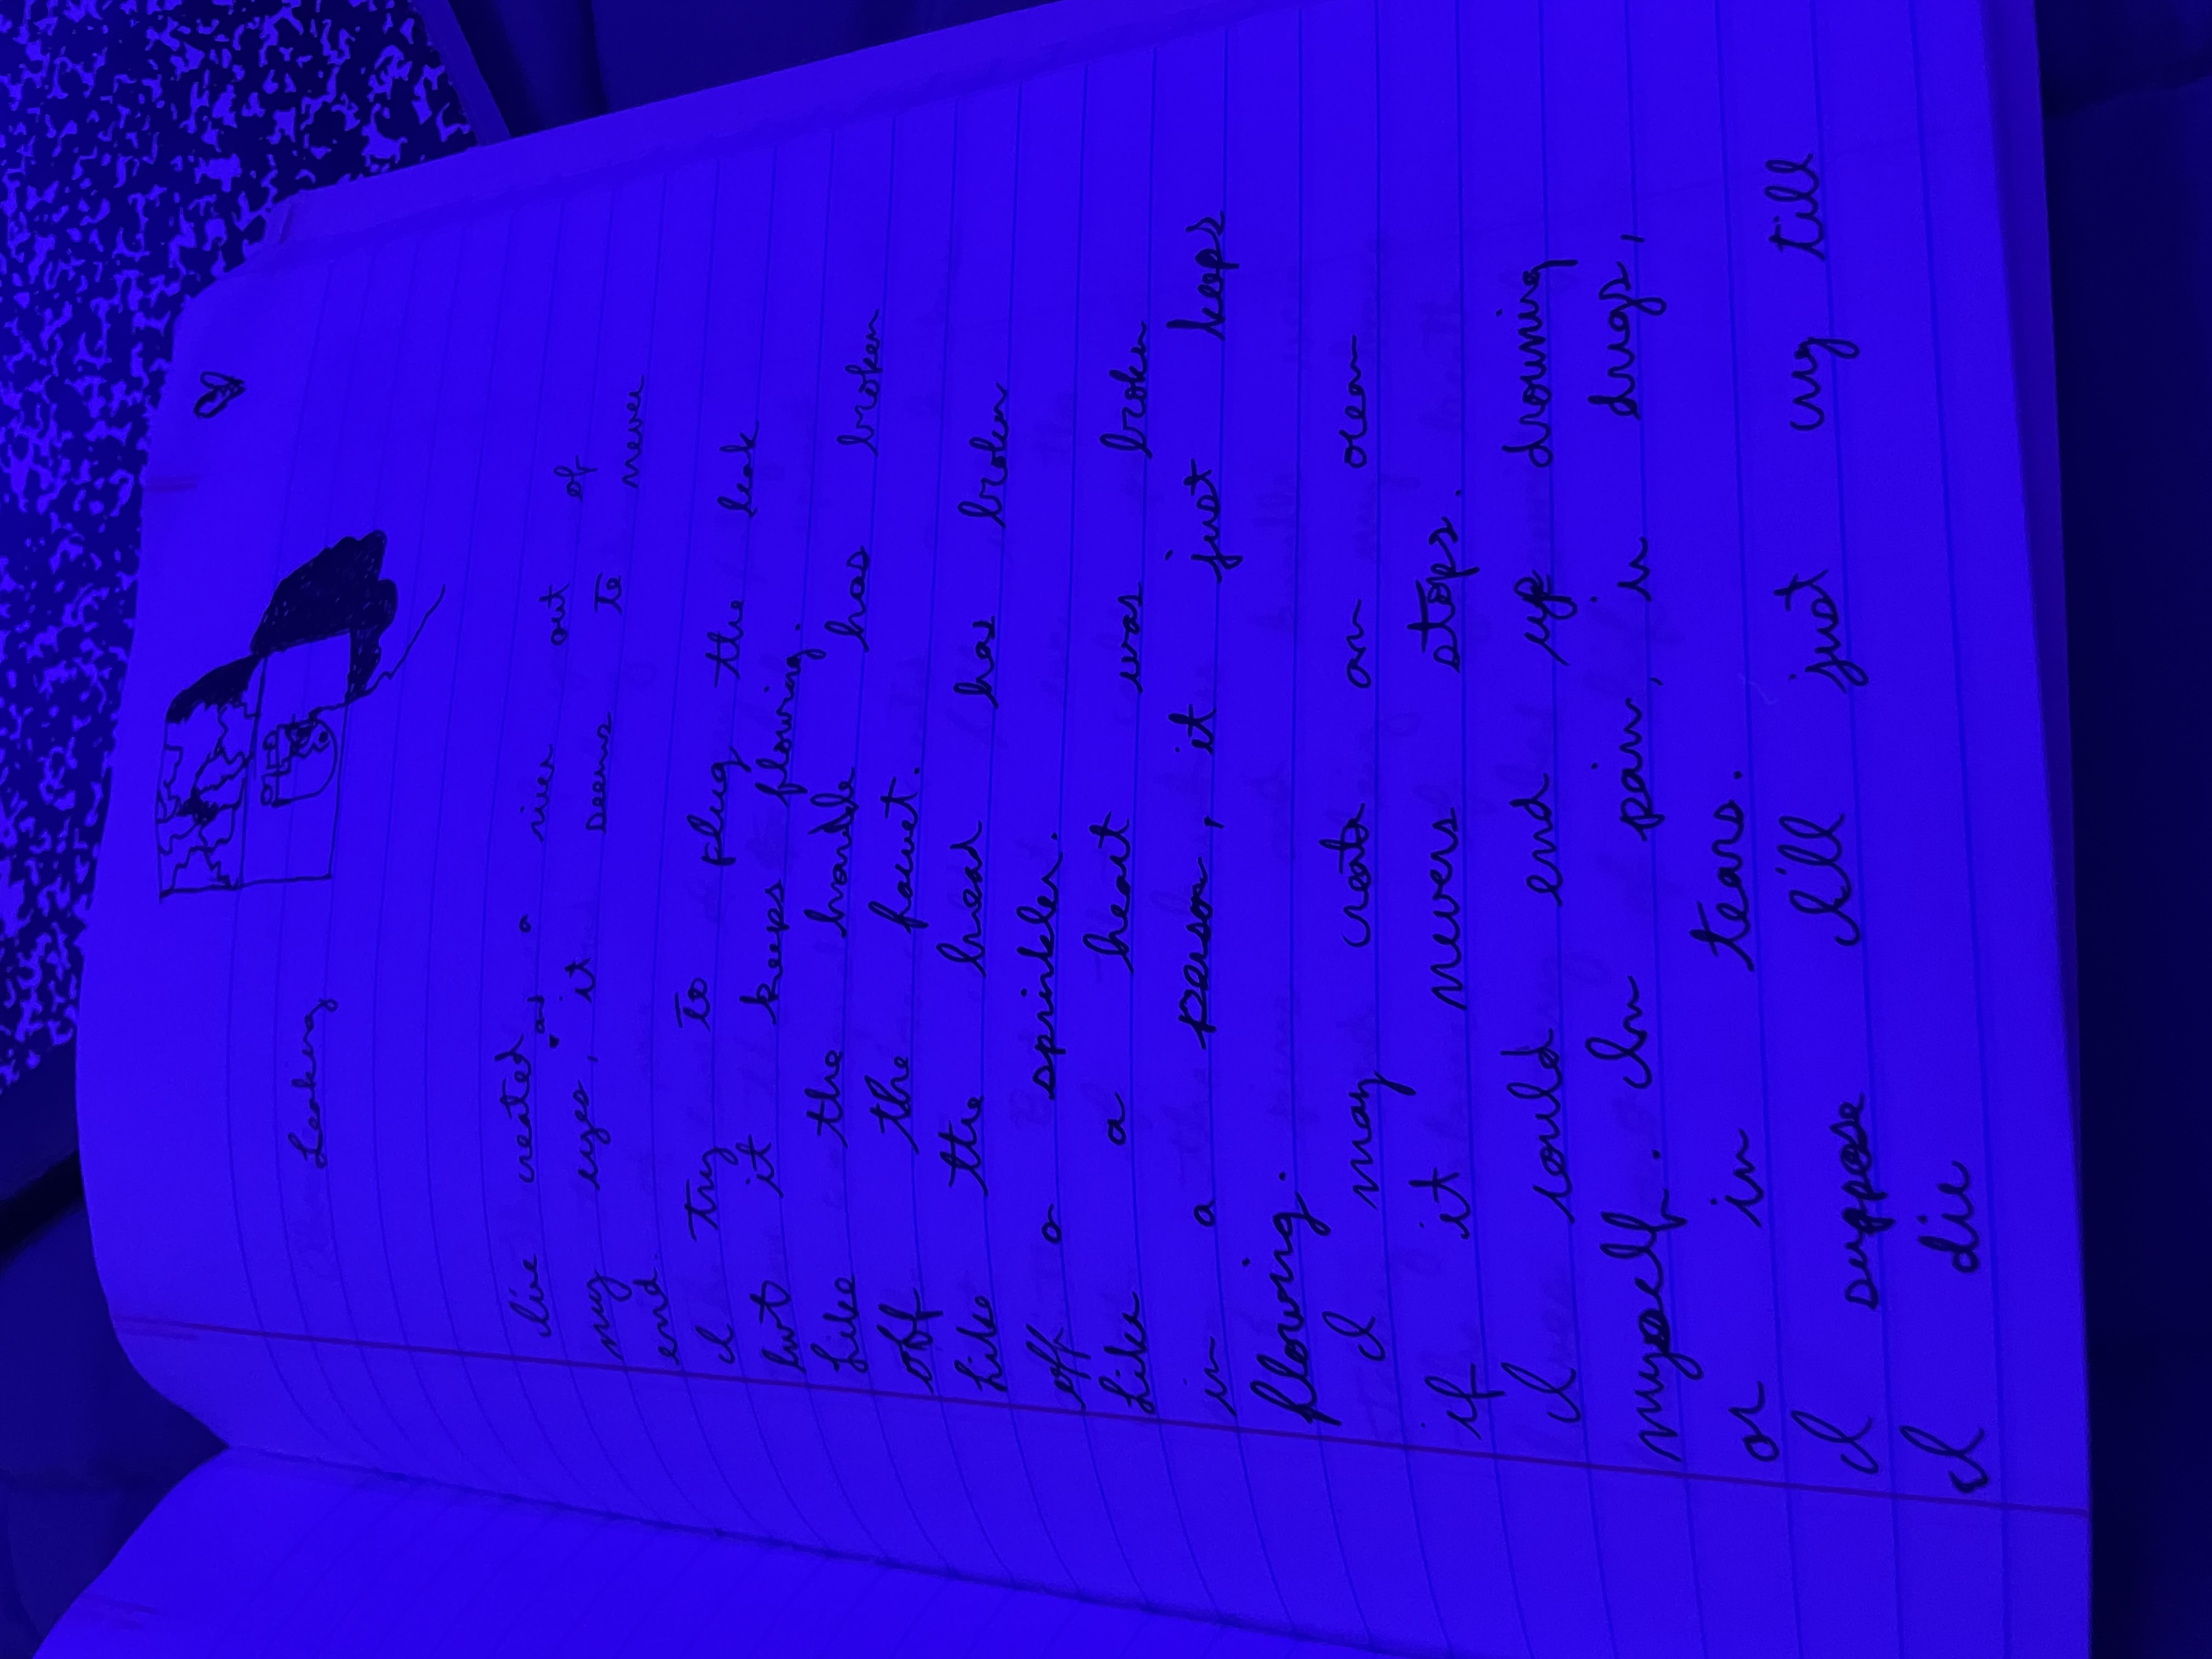 Leaking
I've created a river out of
my eyes, it seems to never
end.
I try to plug the leak
but it keeps flowing.
Like the handle has broken
off the faucet.
Like the head has broken
off a sprinkler.
Like a heart was broken
in a person, it just keeps
flowing.
I may create an ocean
if it nevers stops.
I could end up drowning
myself. In pain, in drugs,
or in tears.
I suppose I'll just cry till
I die